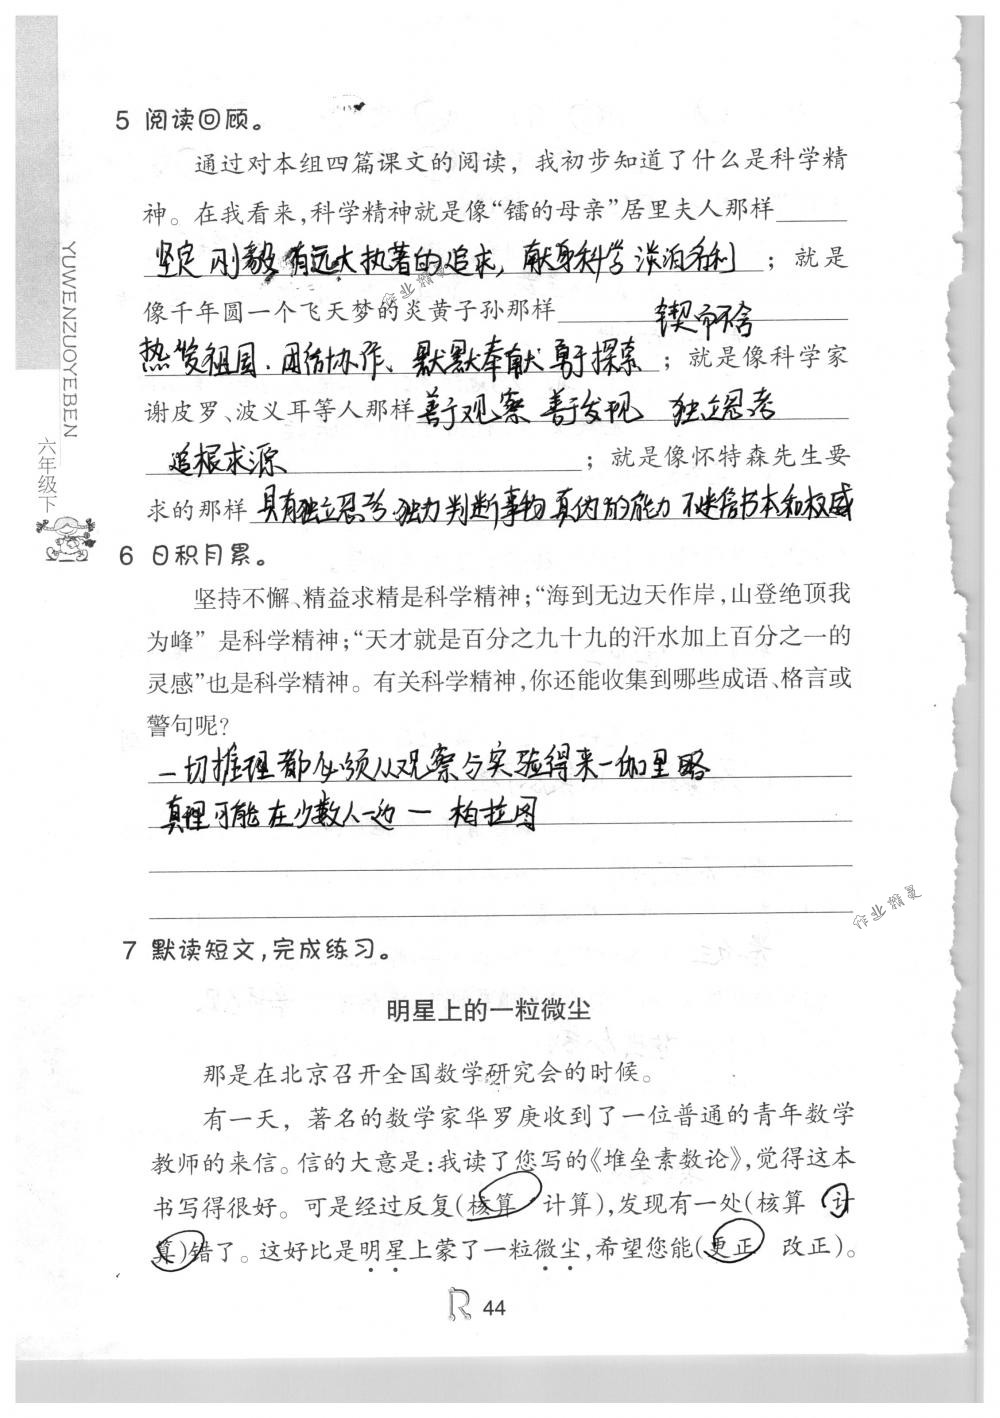 5 阅读回顾。
通过对本组四篇课文的阅读，我初步知道了什么是科学精
神。在我看来，科学精神就是像“镭的母亲”居里夫人那样
坚定 刚毅 有远大执著的追求，献身科学 淡泊名利；就是
像千年圆一个飞天梦的炎黄子孙那样 锲而不舍
热爱祖国、团结协作、默默奉献 勇于探索；就是像科学家
谢皮罗、波义耳等人那样善于观察 善于发现 独立思考
追根求源；就是像怀特森先生要
求的那样 具有独立思考 独力判断事物真伪的能力 不迷信书本和权威
6 日积月累。
坚持不懈、精益求精是科学精神；“海到无边天作岸，山登绝顶我
为峰”是科学精神；“天才就是百分之九十九的汗水加上百分之一的
灵感”也是科学精神。有关科学精神，你还能收集到哪些成语、格言或
警句呢？
一切推理都必须从观察与实验得来—伽里略
真理可能在少数人一边 — 柏拉图
7 默读短文，完成练习。
明星上的一粒微尘
那是在北京召开全国数学研究会的时候。
有一天，著名的数学家华罗庚收到了一位普通的青年数学
教师的来信。信的大意是：我读了您写的《堆垒素数论》，觉得这本
书写得很好。可是经过反复（核算 计算），发现有一处（核算 计
算）错了。这好比是明星上蒙了一粒微尘，希望您能（更正 改正）。
R 44
YUWENZUOYEBEN
六年级下
作业精灵
作业精灵